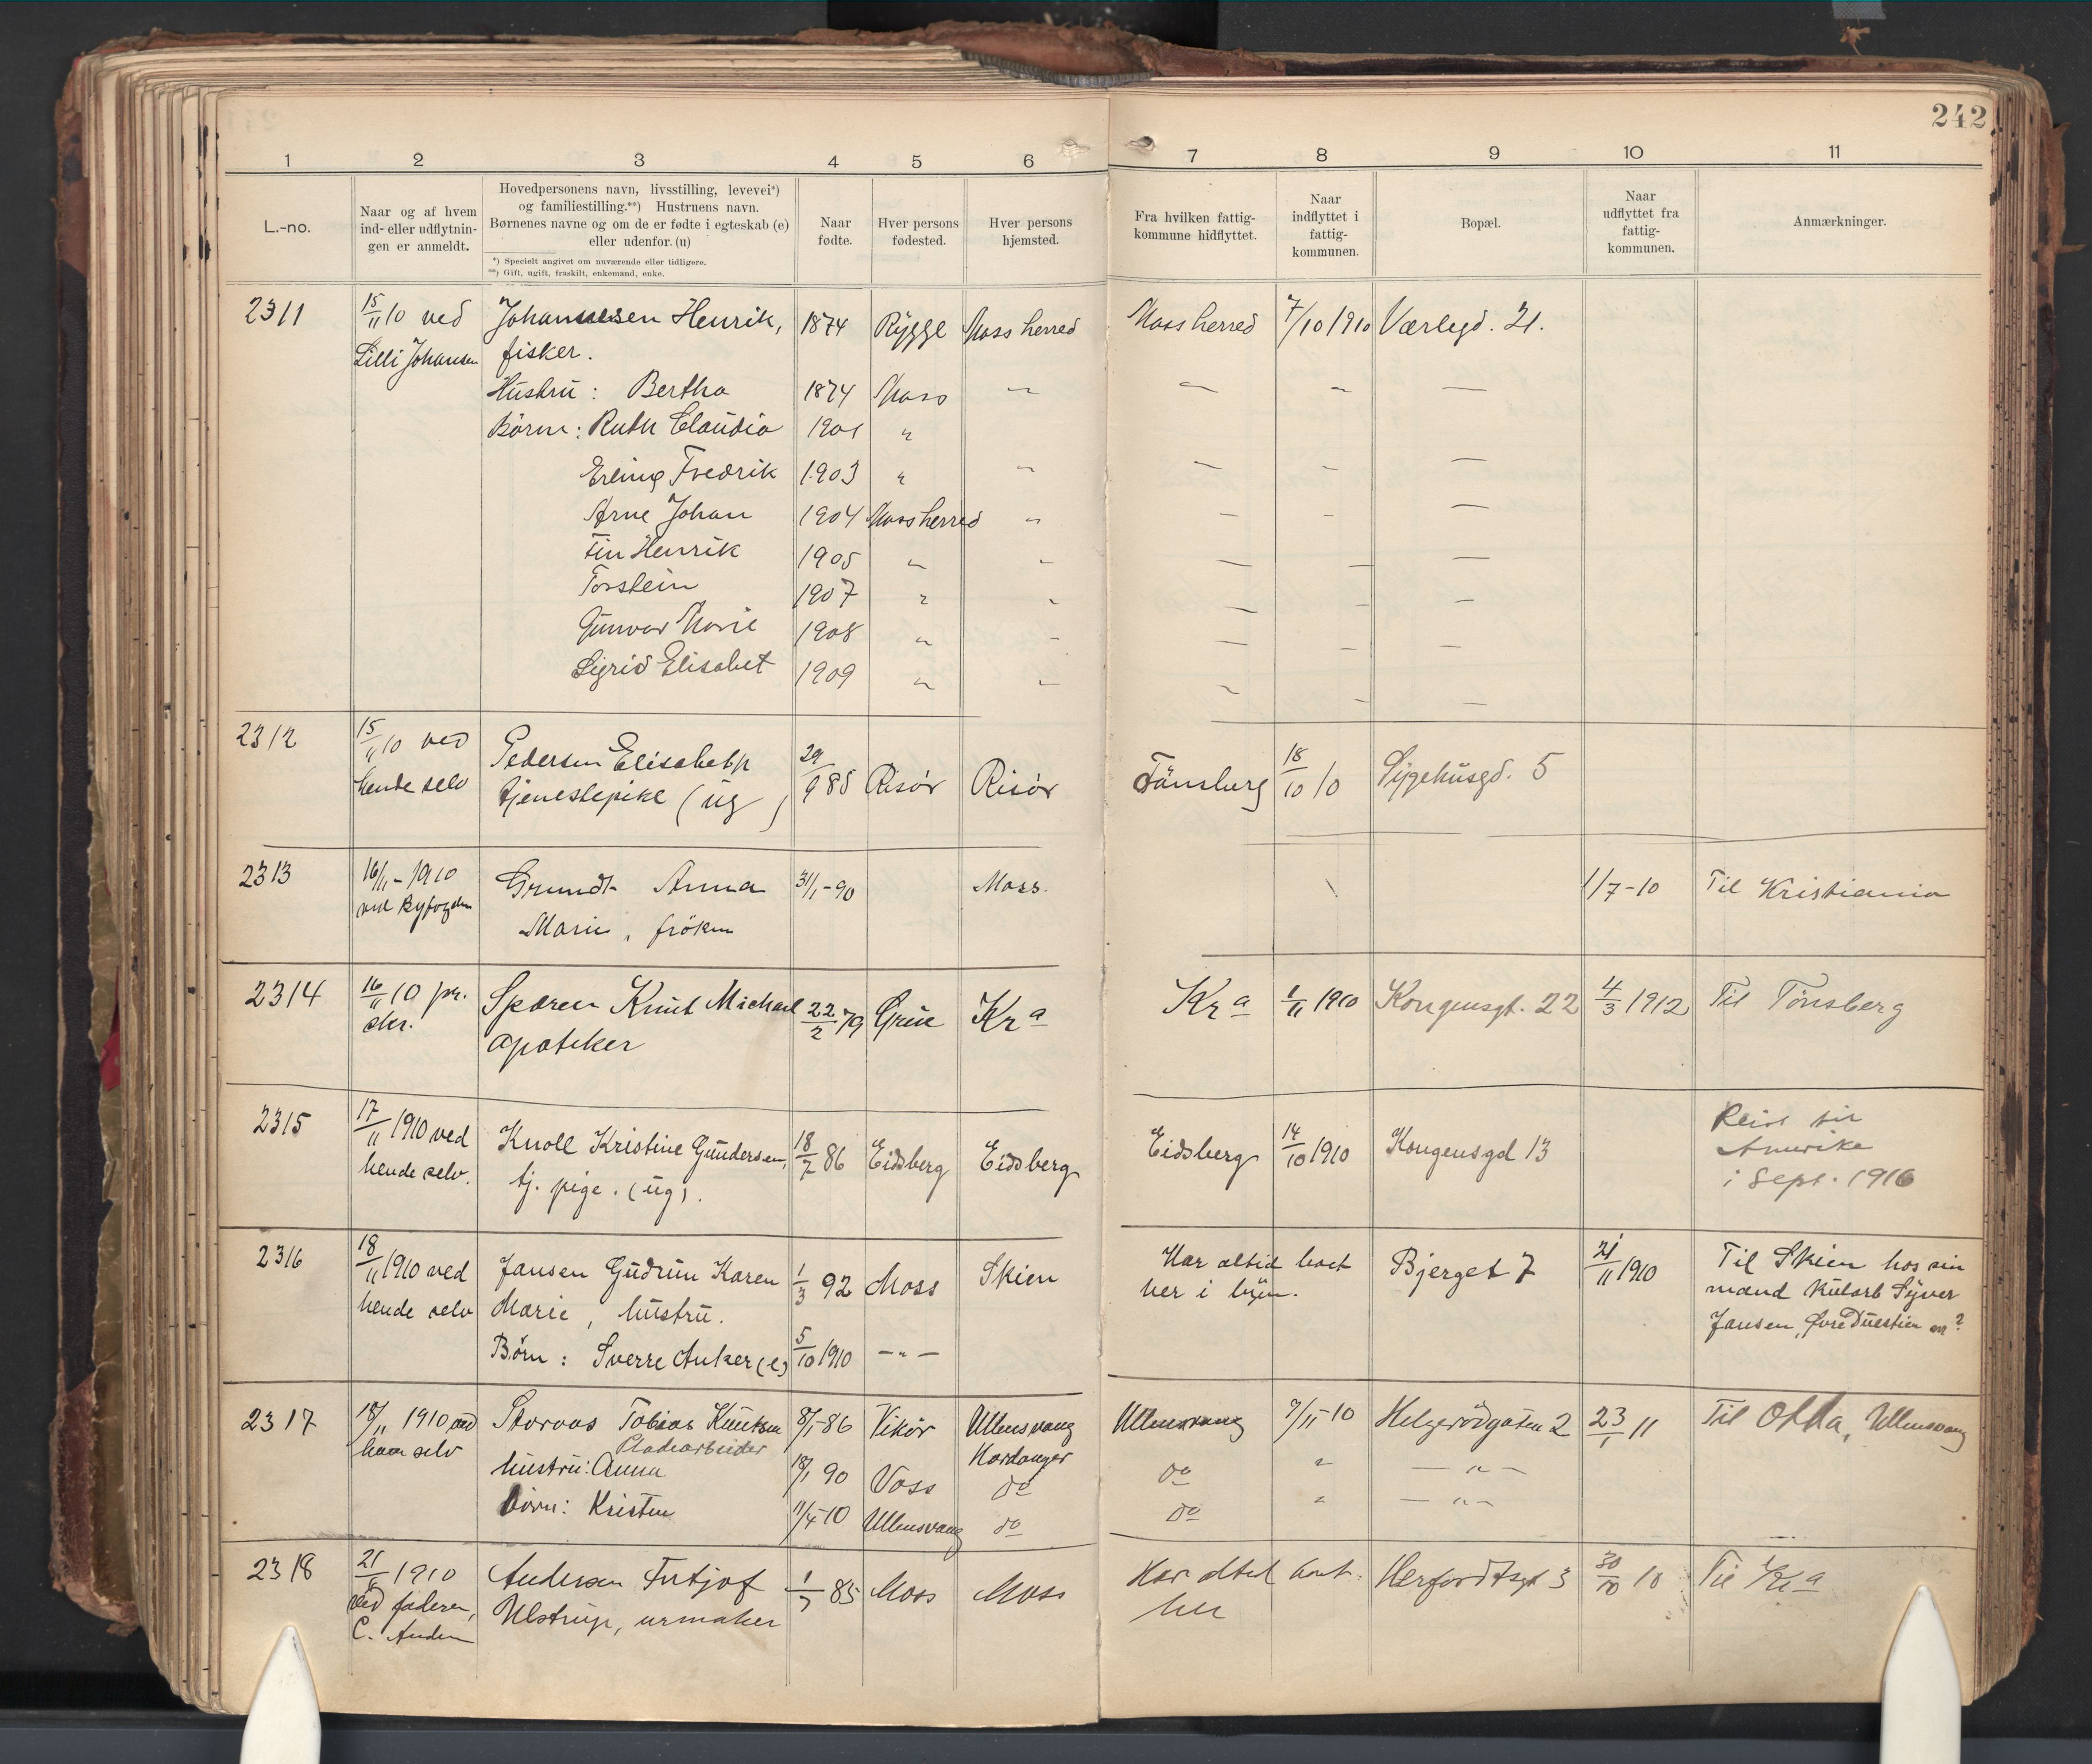 242
1 2 3 4 5 6 7 8 9 10 11
L.-no.
Naar og af hvem
ind- eller udflytnin-
gen er anmeldt.
Hovedpersonens navn, livsstilling, levevei*)
og familiestilling.**) Hustruens navn.
Børnenes navne og om de er fødte i egteskab (e)
eller udenfor. (u)
*) Specielt angivet om nuværende eller tidligere.
**) Gift, ugift, fraskilt, enkemand, enke.
Naar
fødte.
Hver persons
fødested.
Hver persons
hjemsted.
Fra hvilken fattig-
kommune hidflyttet.
Naar
indflyttet i
fattig-
kommunen.
Bopæl.
Naar
udflyttet fra
fattig-
kommunen.
Anmærkninger.
2311 15/11 10 ved Johannesen Henrik, 1874 Rygge Moss herred Moss herred 7/10 1910 Værlegd. 21.
Lilli Johansen fisker.
Hustru: Bertha 1874 Moss " — — —
Børn: Ruth Claudia 1901 "
Erling Fredrik 1903 " " — — —
Arne Johan 1904 Moss herred " — — —
Fin Henrik 1905 " " — — —
Torstein 1907 " " — — —
Gunvor Marie 1908 " " — — —
Sigrid Elisabet 1909 " " — — —
2312 15/11 10 ved Pedersen Elisabeth 29/9 85 Risör Risör Tönsberg 18/10 10 Sygehusgd. 5
hende selv tjenestepike (ug)
2313 16/11-1910 Grundt Anna 31/1-90 Moss. 1/7-10 Til Kristiania
ved Byfogden Marie, fröken
2314 16/11 10 pr. Sparen Knut Michael 22/2 79 Grue Kra Kra 1/11 1910 Kongensgt. 22 4/3 1912 Til Tönsberg
skr. apoteker
2315 17/11 1910 ved Knoll Kristine Gundersen, 18/7 86 Eidsberg Eidsberg Eidsberg 14/10 1910 Kongensgd 13 Reist til
hende selv. tj. pige. (ug). Amerika
i Sept. 1916
2316 18/11 1910 ved Jansen Gudrun Karen 1/3 92 Moss Skien Har altid boet Bjerget 7 21/11 1910 Til Skien hos sin
hende selv Marie, hustru. her i byen. mand Kularb Syver
Jansen, Øvre
Børn: Sverre Anker (e) 5/10 1910 — " —
2317 18/11 1910 ved Storaas Tobias Knutsen 8/1-86 Vikör Ullensvang Ullensvang 9/11-10 Helgerödgaten 2 23/1 11 Til Odda, Ullensvang
ham selv Pladearbeider Hardanger
hustru: Anna 18/1 90 Voss do do " — " —
børn: Kristen 11/4-10 Ullensvang do do " — " —
2318 21/11 1910 Andersen Fritjof 1/7 85 Moss Moss Har altid boet Herfordtsgt 3 30/10 10 Til Kra
ved faderen, Ulstrup, urmaker her
C. Andersen